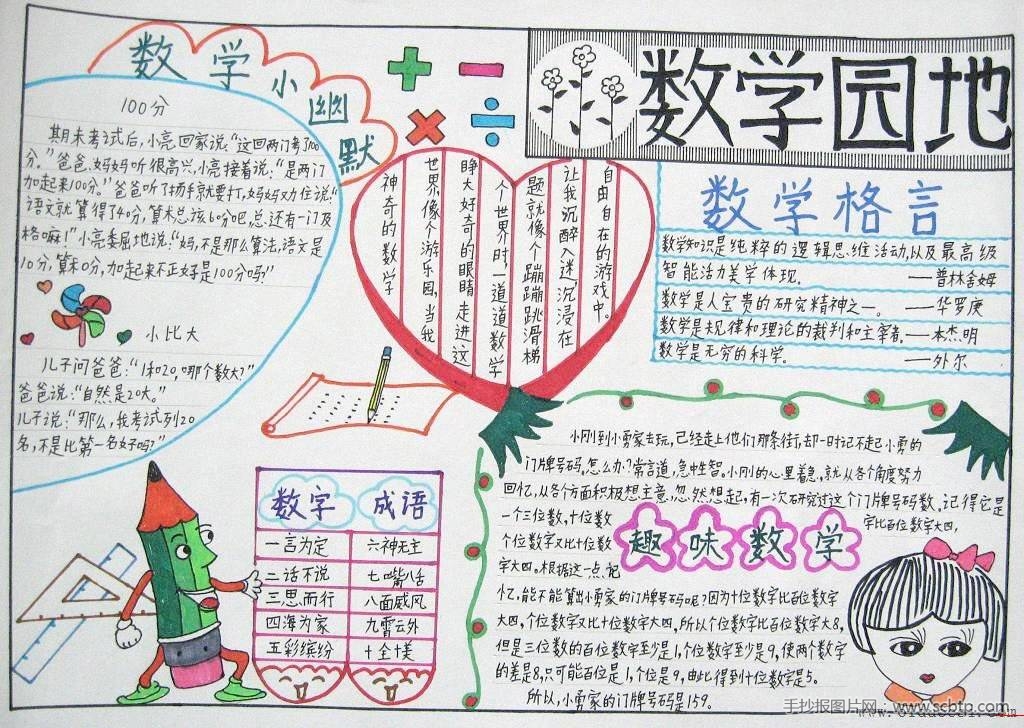 数学小幽默
100分
期末考试后,小亮回家说:“这回两门考了100
分。”爸爸、妈妈听很高兴,小亮接着说:“是两门
加起来100分。”爸爸听了扬手就要打,妈妈劝住说:“
语文就算得了40分,算术总该60分吧,总还有一门及
格嘛!”小亮委屈地说:“妈,不是那么算法,语文是
10分,算术0分,加起来不正好是100分吗?”
小比大
儿子问爸爸:“1和20,哪个数大?”
爸爸说:“自然是20大。”
儿子说:“那么,我考试列20
名,不是比第一名好吗?”
数学园地
神奇的数学
世界像个游乐园,当我
睁大好奇的眼睛走进这
个世界时,一道道数学
题就像个蹦蹦跳滑梯
让我沉醉入迷,沉浸在
自由自在的游戏中。
数学格言
数学知识是纯粹的逻辑思维活动,以及最高级
智能活力美学体现。——普林舍姆
数学是人宝贵的研究精神之一。——华罗庚
数学是规律和理论的裁判和主宰者。——本杰明
数学是无穷的科学。——外尔
数字 成语
一言为定 六神无主
二话不说 七嘴八舌
三思而行 八面威风
四海为家 九霄云外
五彩缤纷 十全十美
趣味数学
小刚到小勇家去玩,已经走上他们那条街,却一时记不起小勇的
门牌号码,怎么办?常言道,急中生智。小刚的心里着急,就从各个角度努力
回忆,从各个方面积极想主意,忽然想起,有一次研究过这个门牌号码数,记得它是
一个三位数,十位数
字比百位数字大四,
个位数字又比十位数
字大四。根据这一点记
忆,能不能算出小勇家的门牌号码呢?因为十位数字比百位数字
大四,个位数字又比十位数字大四,所以个位数字比百位数字大8,
但是三位数的百位数字至少是1,个位数字至少是9,使两个数字
的差是8,只可能百位是1,个位是9,由此得到十位数字是5。
所以,小勇家的门牌号码是159。
手抄报图片网:www.scbtp.com